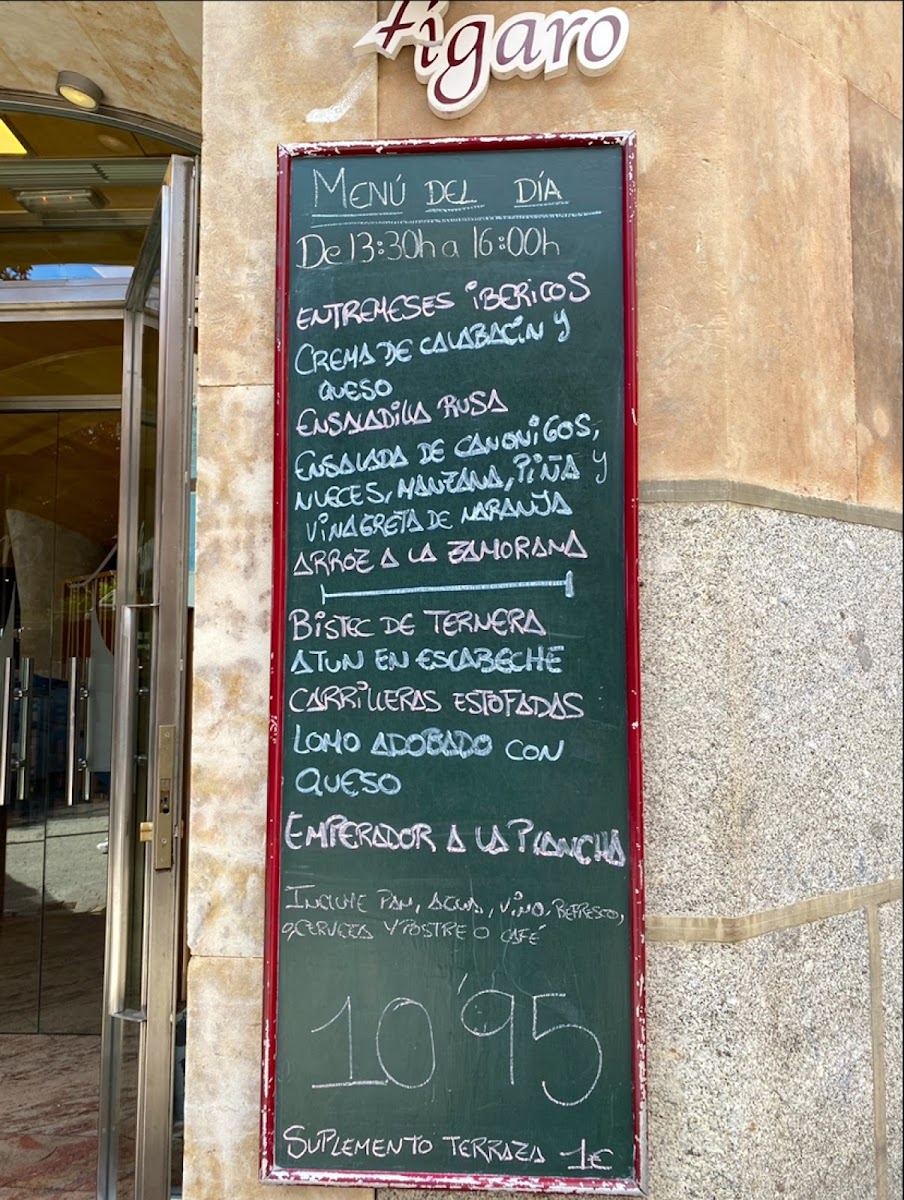 Fígaro
MENÚ DEL DÍA
De 13:30h a 16:00h
ENTREMESES IBERICOS
CREMA DE CALABACÍN Y
QUESO
ENSALADILLA RUSA
ENSALADA DE CANONIGOS,
NUECES, MANZANA, PIÑA Y
VINAGRETA DE NARANJA
ARROZ A LA ZAMORANA
BISTEC DE TERNERA
ATUN EN ESCABECHE
CARRILLERAS ESTOFADAS
LOMO ADOBADO CON
QUESO
EMPERADOR A LA PLANCHA
INCLUYE PAN, AGUA, VINO, REFRESCO,
o CERVEZA Y POSTRE O CAFÉ
10'95
SUPLEMENTO TERRAZA 1€